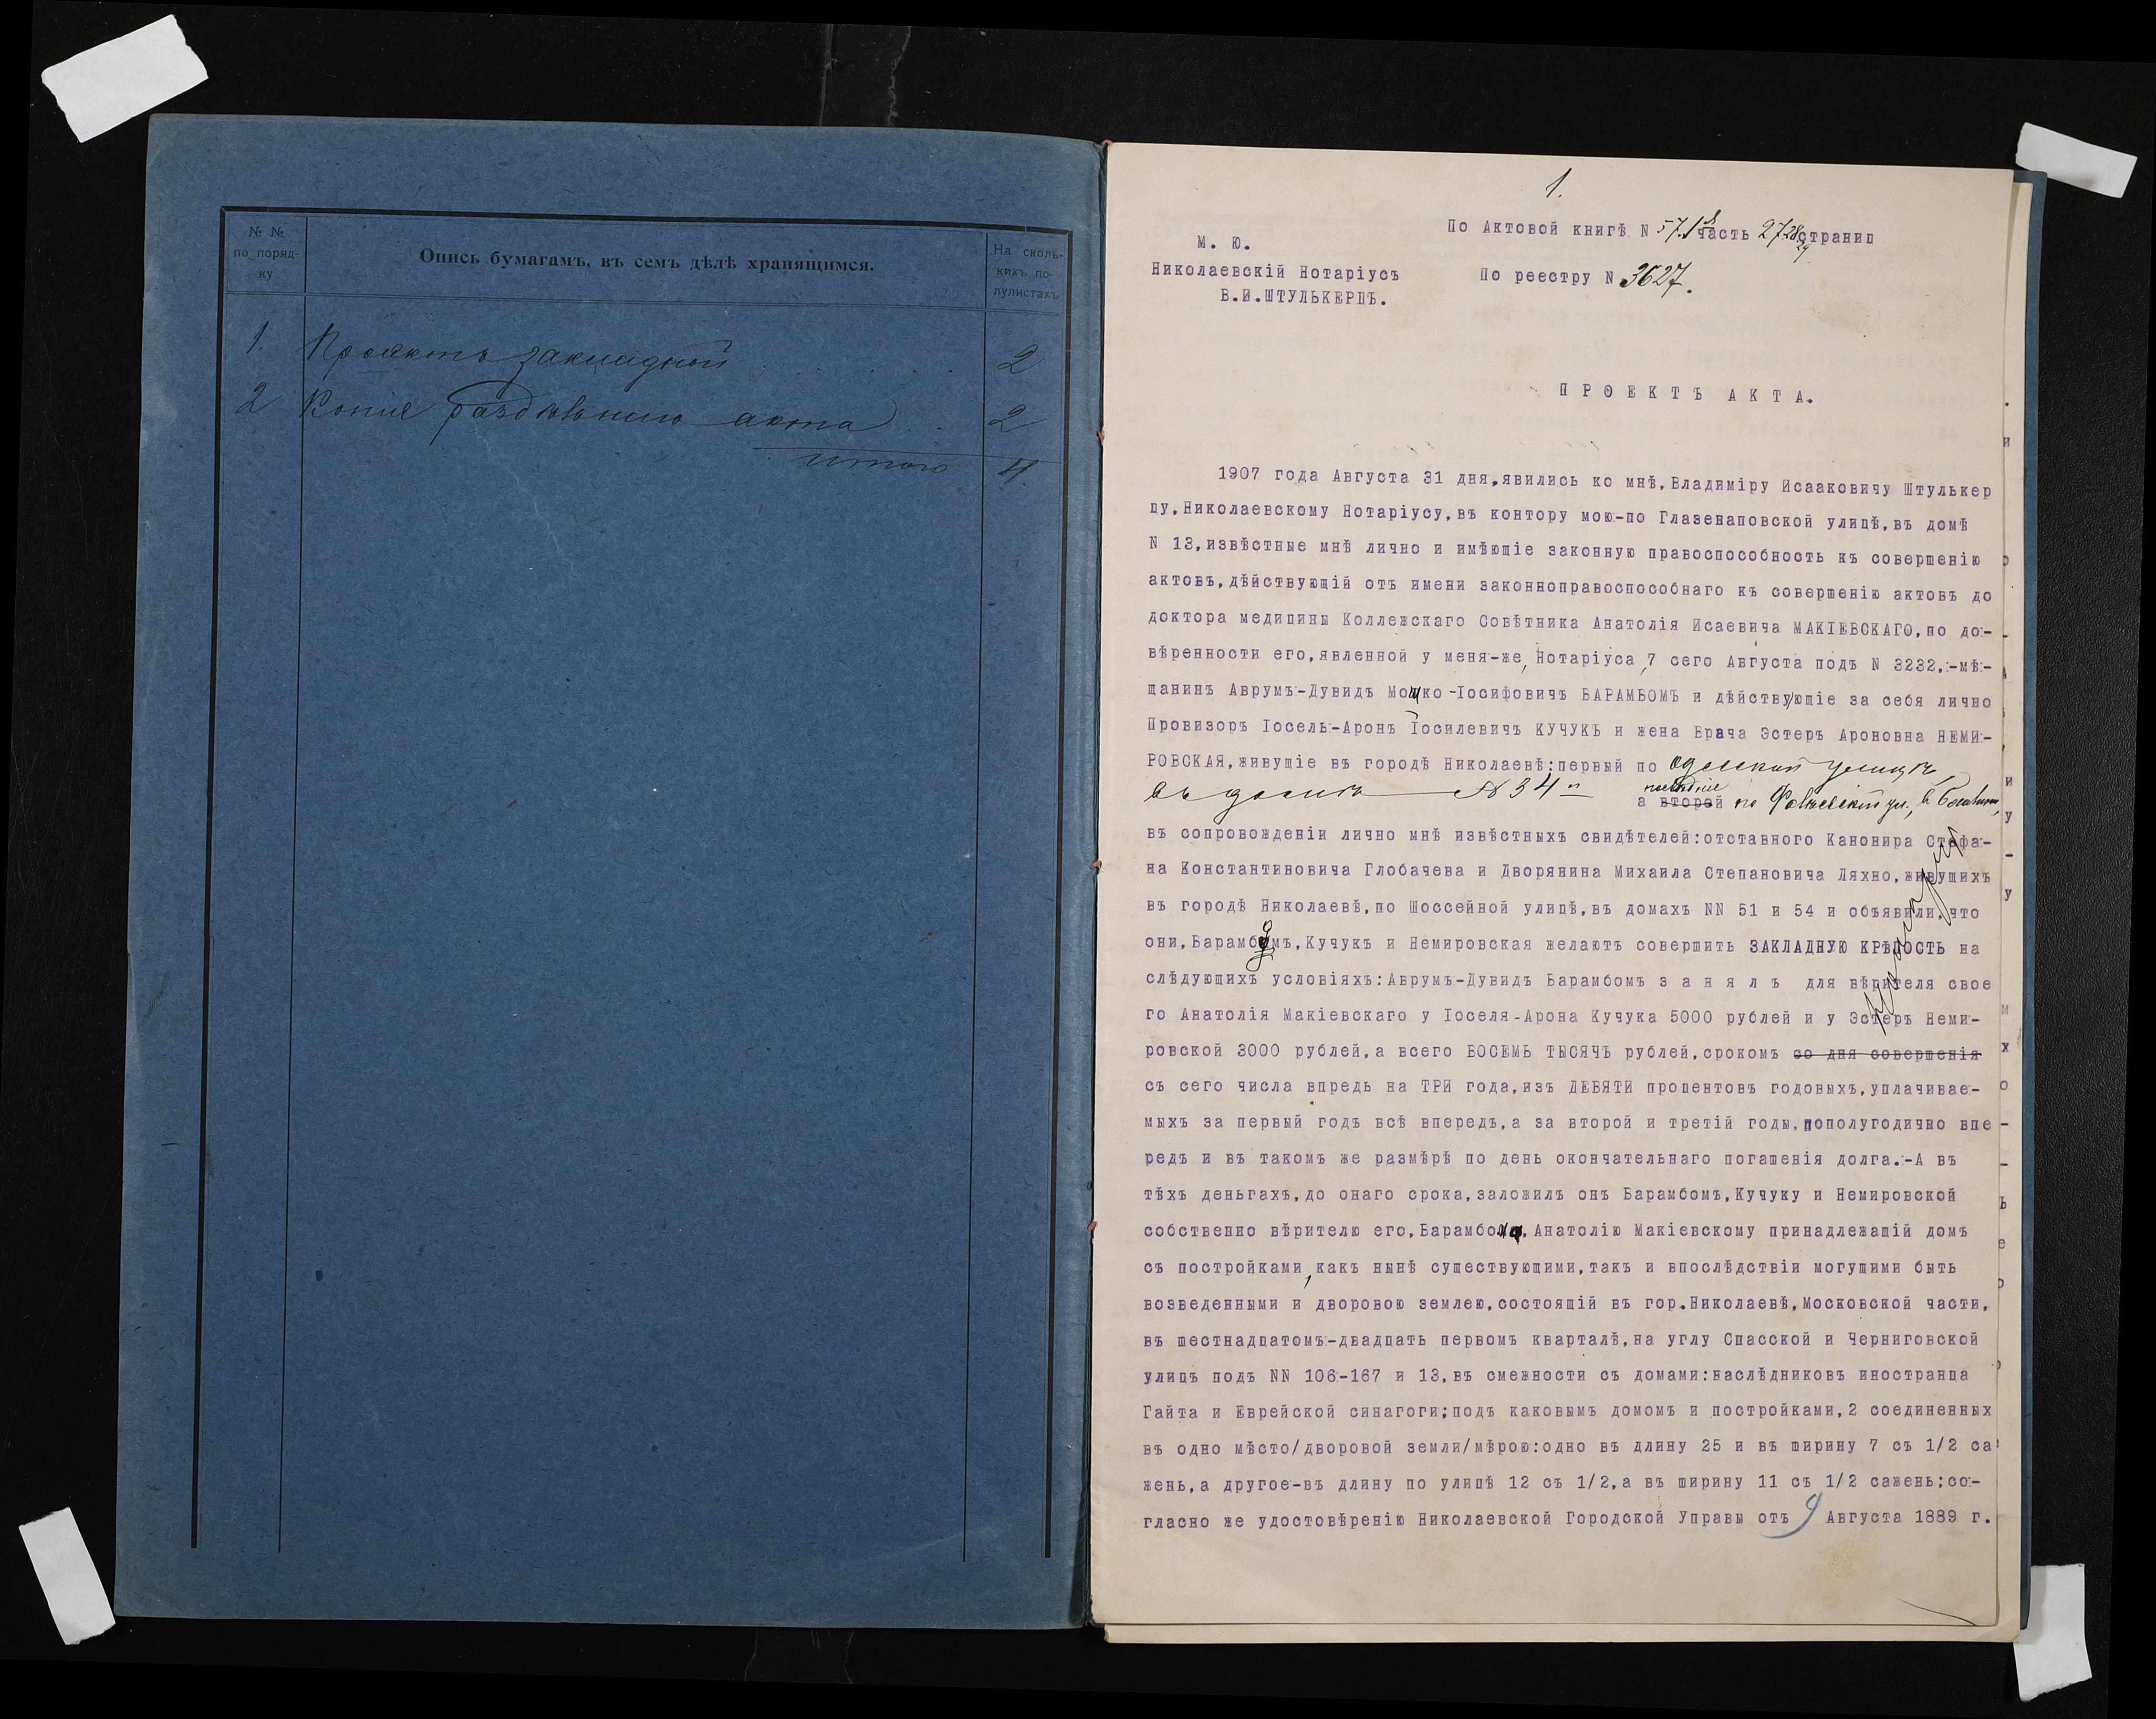 № №
по поряд-
ку
Опись бумагамъ, въ семъ дѣлѣ хранящимся.
На сколь-
кихъ по-
лулистахъ
1. Проектъ закладной 2
2 Копіе раздѣльнаго акта 2
итого 4
1.
По Актовой книгѣ N 57. 1я часть 27 28 29 страниц
М. Ю.
Николаевскій Нотаріусъ
В.И.ШТУЛЬКЕРЦЪ.
По реестру N 3627.
ПРОЕКТЪ АКТА.
1907 года Августа 31 дня,явились ко мнѣ,Владиміру Исааковичу Штулькер
цу,Николаевскому Нотаріусу,въ контору мою-по Глазенаповской улицѣ,въ домѣ
N 13,извѣстные мнѣ лично и имѣющіе законную правоспособность къ совершенію
актовъ,дѣйствующій отъ имени законноправоспособнаго къ совершенію актовъ до
доктора медицины Коллежскаго Совѣтника Анатолія Исаевича МАКІЕВСКАГО,по до-
вѣренности его,явленной у меня-же,Нотаріуса,7 сего Августа подъ N 3232,-мѣ-
щанинъ Аврумъ-Дувидъ Мошко-Іосифовичъ БАРАМБОМЪ и дѣйствующіе за себя лично
Провизоръ Іосель-Аронъ Іосилевичъ КУЧУКЪ и жена Врача Эстеръ Ароновна НЕМИ-
РОВСКАЯ,живущіе въ городѣ Николаевѣ:первый по Одесской улицѣ,
въ домѣ N 34й а второй последніе по ул., в
въ сопровожденіи лично мнѣ извѣстныхъ свидѣтелей:отставного Канонира Стефа-
на Константиновича Глобачева и Дворянина Михаила Степановича Ляхно,живущихъ
въ городѣ Николаевѣ,по Шоссейной улицѣ,въ домахъ NN 51 и 54 и объявили,что
они,Барамбомъ,Кучукъ и Немировская желаютъ совершить ЗАКЛАДНУЮ КРѢПОСТЬ на
слѣдующихъ условіяхъ:Аврумъ-Дувидъ Барамбомъ з а н я л ъ для вѣрителя свое
го Анатолія Макіевскаго у Іоселя-Арона Кучука 5000 рублей и у Эстеръ Неми-
ровской 3000 рублей,а всего ВОСЕМЬ ТЫСЯЧЪ рублей,срокомъ со дня совершенія
съ сего числа впредь на ТРИ года,изъ ДЕВЯТИ процентовъ годовыхъ,уплачивае-
мыхъ за первый годъ всѣ впередъ,а за второй и третій годы,пополугодично впе
редъ и въ такомъ же размѣрѣ по день окончательнаго погашенія долга.-А въ
тѣхъ деньгахъ,до онаго срока,заложилъ онъ Барамбомъ,Кучуку и Немировской
собственно вѣрителю его,Барамбома,Анатолію Макіевскому принадлежащій домъ
съ постройками,какъ нынѣ существующими,такъ и впослѣдствіи могущими быть
возведенными и дворовою землею,состоящій въ гор.Николаевѣ,Московской части,
въ шестнадцатомъ-двадцать первомъ кварталѣ,на углу Спасской и Черниговской
улицъ подъ NN 106-167 и 13,въ смежности съ домами:наслѣдниковъ иностранца
Гайта и Еврейской синагоги;подъ каковымъ домомъ и постройками,2 соединенныхъ
въ одно мѣсто/дворовой земли/мѣрою:одно въ длину 25 и въ ширину 7 съ 1/2 са
жень,а другое-въ длину по улицѣ 12 съ 1/2,а въ ширину 11 съ 1/2 сажень;со-
гласно же удостовѣренію Николаевской Городской Управы отъ 9 Августа 1889 г.